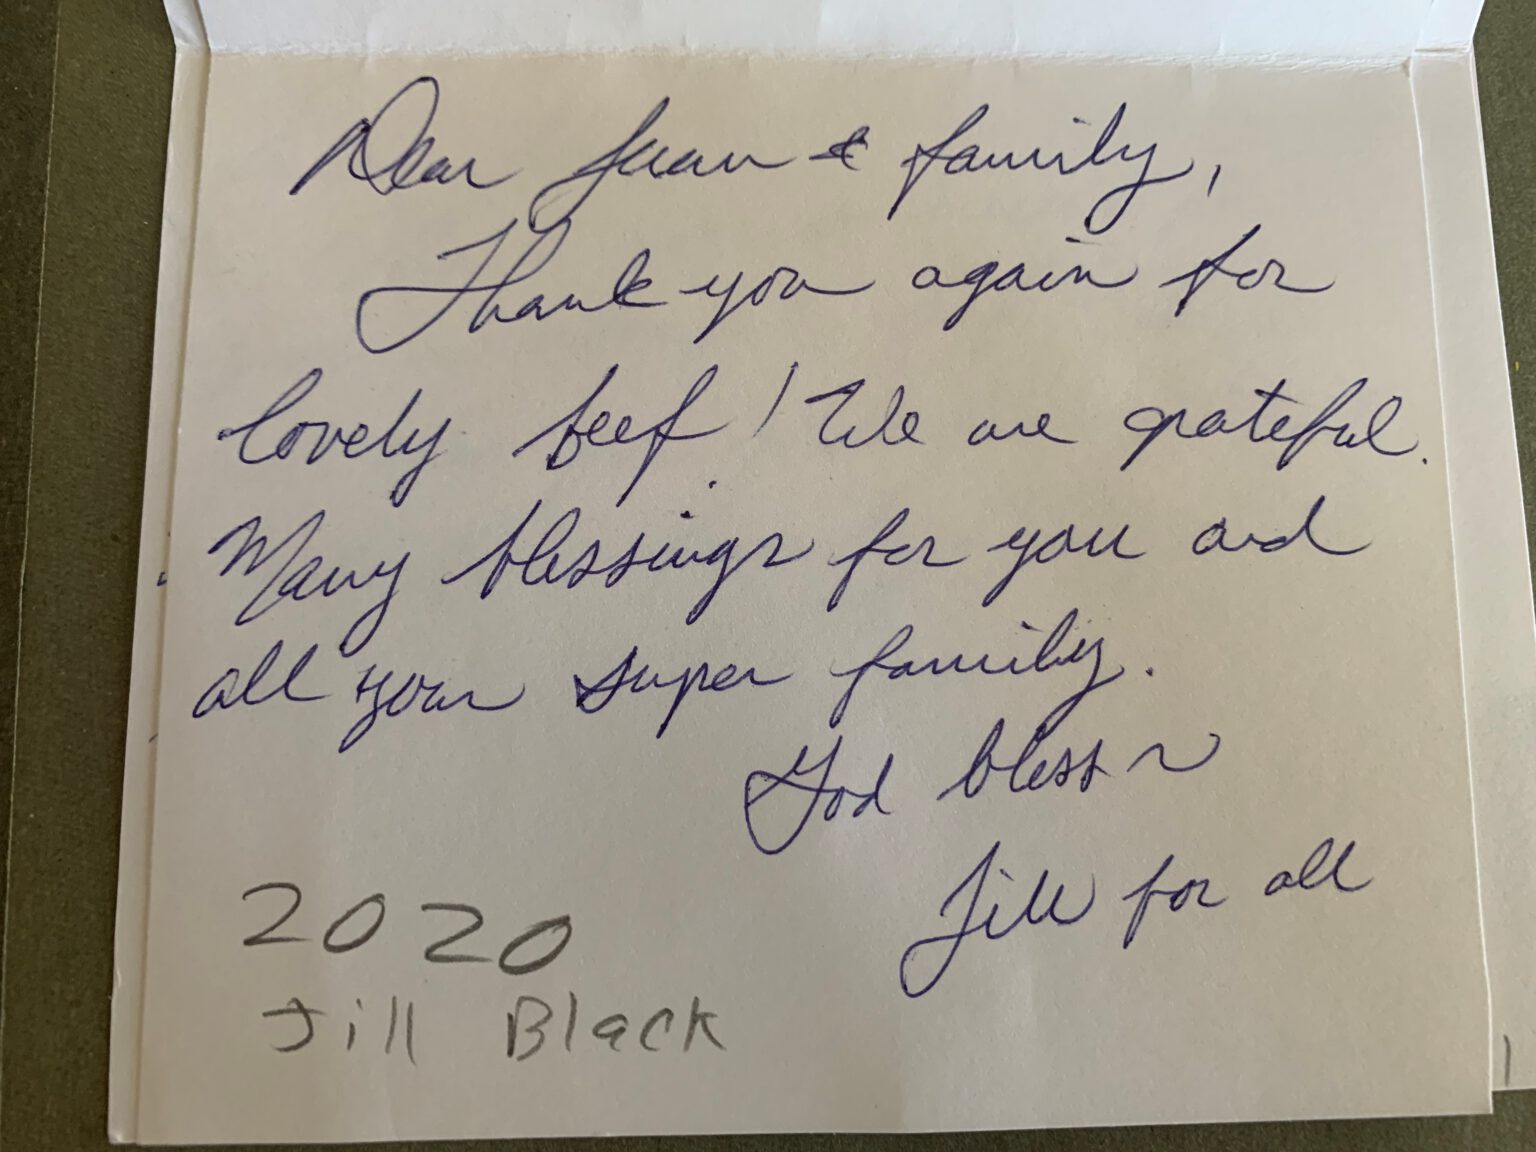 Dear Juan & family,
Thank you again for
lovely beef! We are grateful.
Many blessings for you and
all your super family.
God bless ~
Jill for all
2020
Jill Black